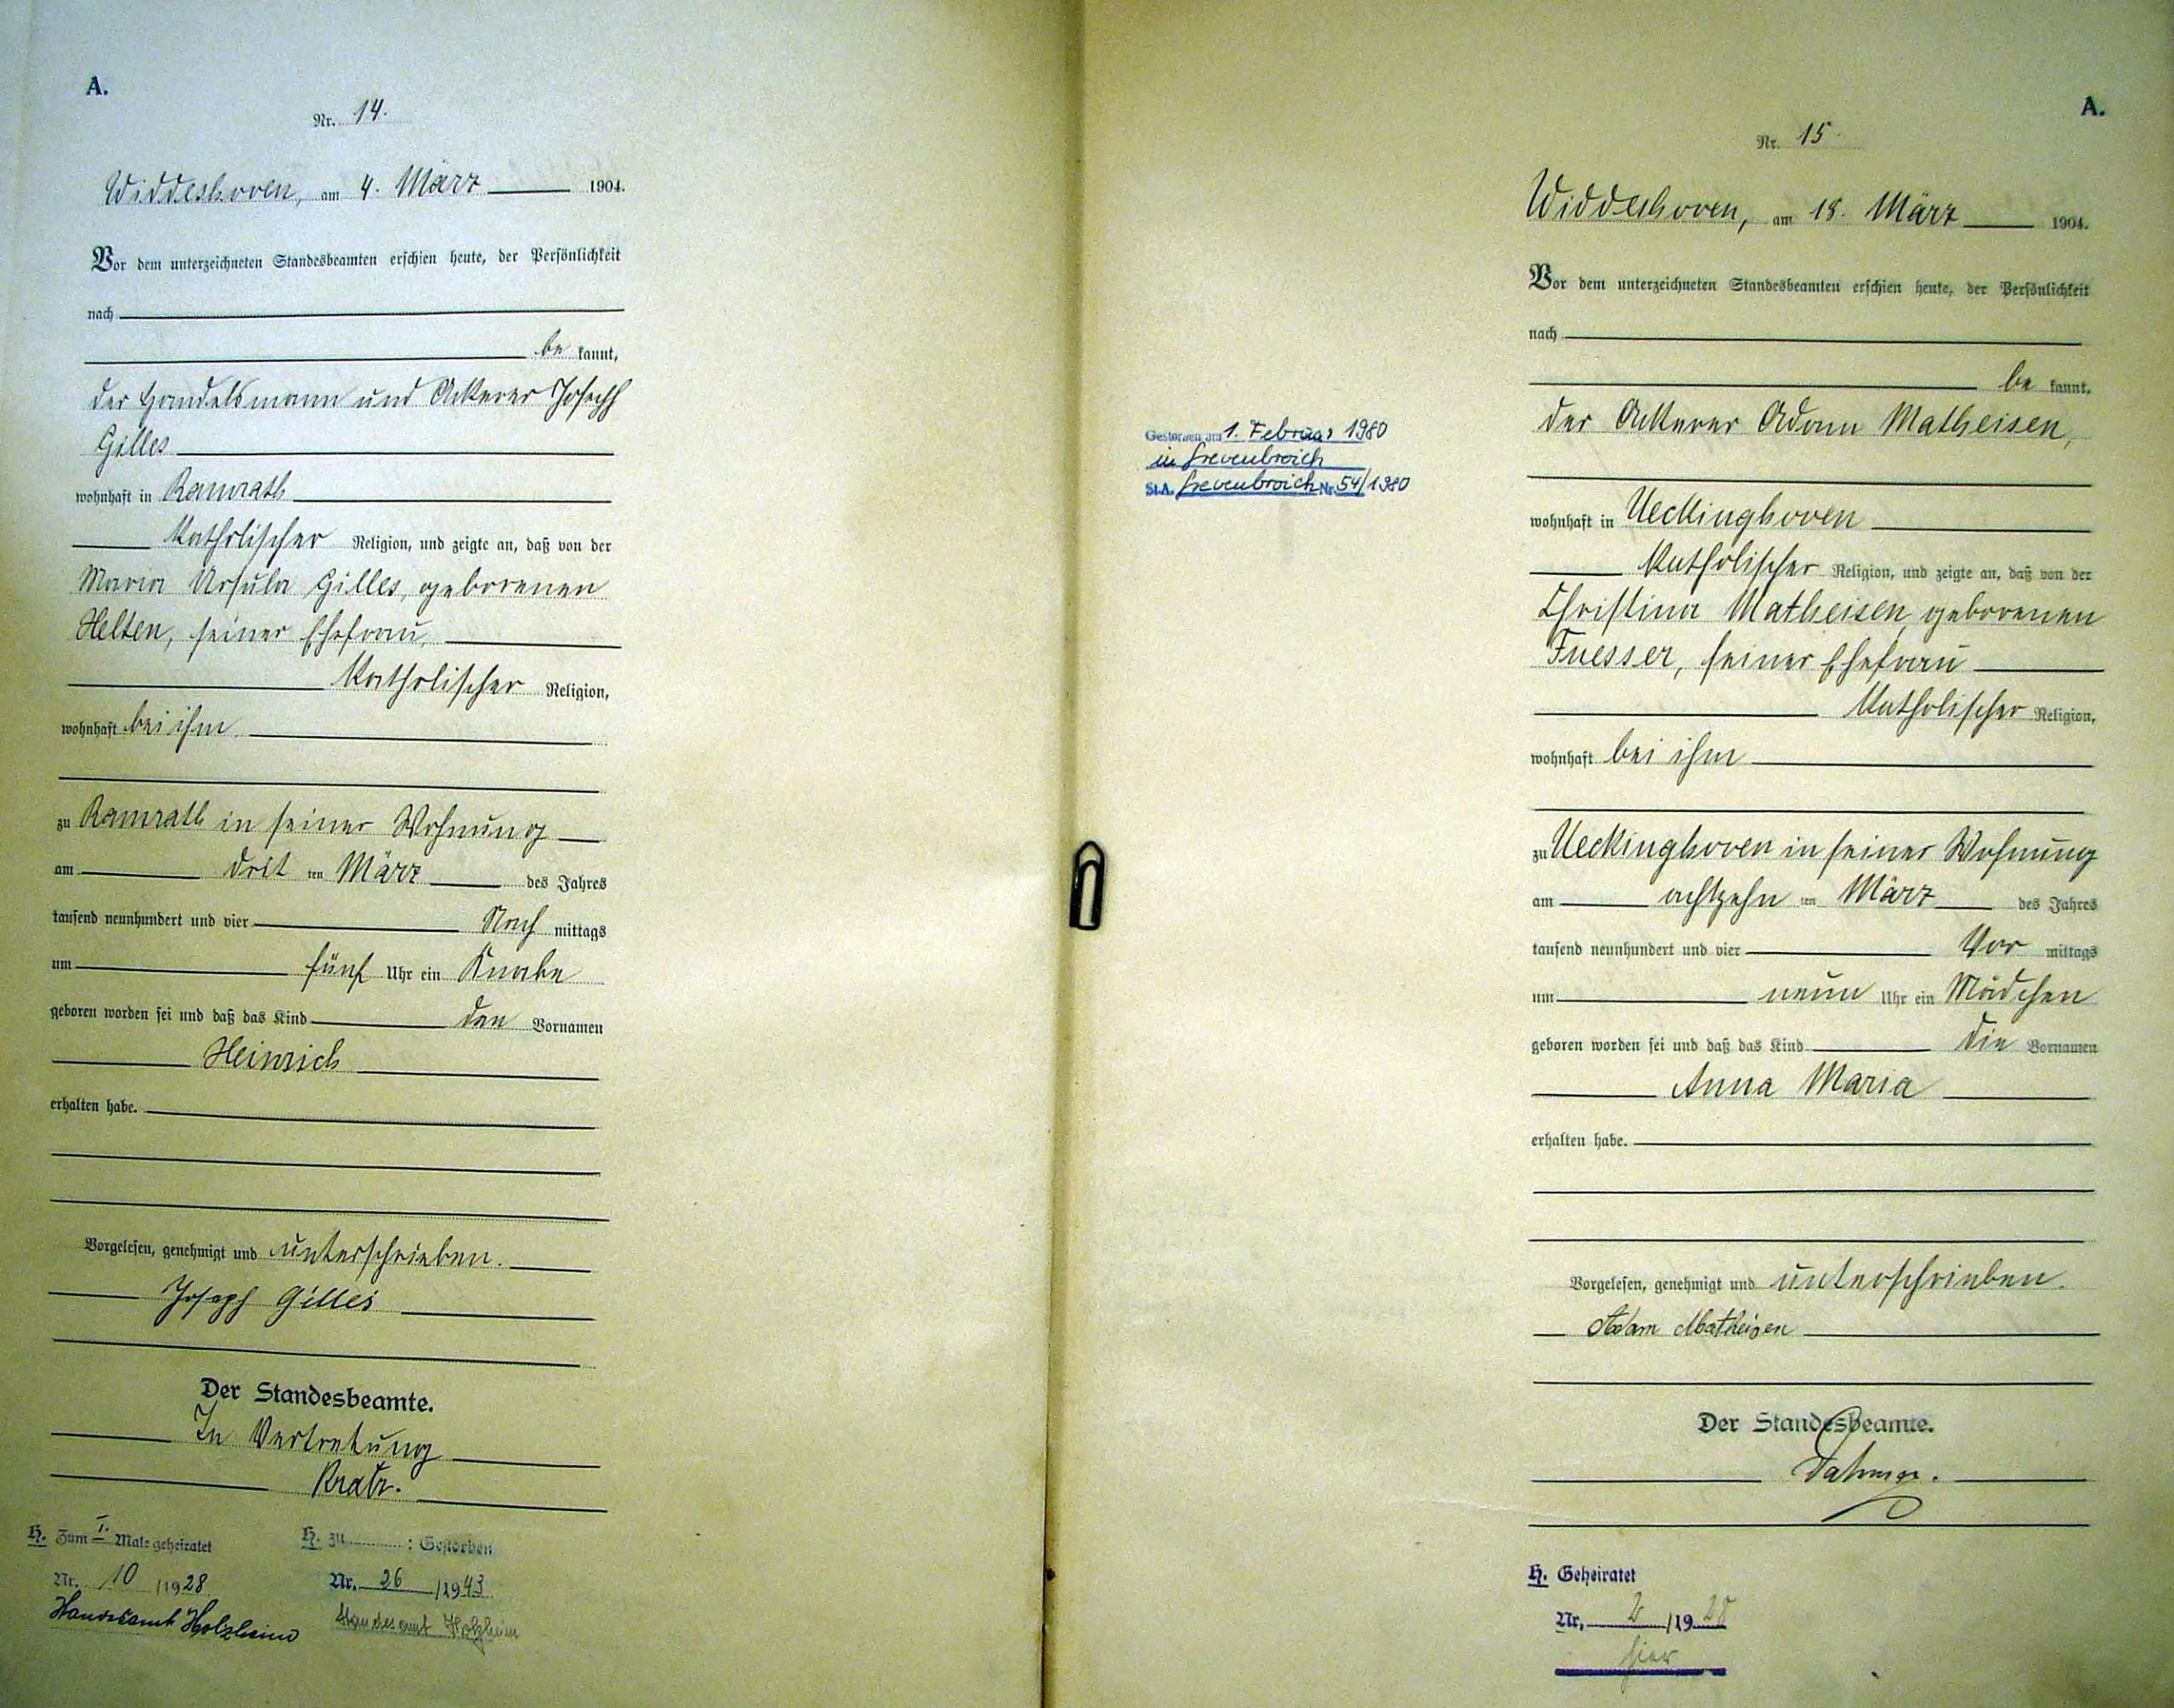 A.
Nr. 14.
Widdeshoven, am 4. März 1904.
Vor dem unterzeichneten Standesbeamten erschien heute, der Persönlichkeit
nach
be kannt,
der Handelsmann und Ackerer Joseph
Gilles
wohnhaft in Ramrath
katholischer Religion, und zeigte an, daß von der
Maria Ursula Gilles, geborenen
Helten, seiner Ehefrau,
katholischer Religion,
wohnhaft bei ihm
zu Ramrath in seiner Wohnung
am drit ten März des Jahres
tausend neunhundert und vier Nach mittags
um fünf Uhr ein Knabe
geboren worden sei und daß das Kind den Vornamen
Heinrich
erhalten habe.
Vorgelesen, genehmigt und unterschrieben.
Joseph Gilles
Der Standesbeamte.
In Vertretung
H. Zum I. Male geheiratet
Nr. 10 /1928
Standesamt Holzheim
H. zu : Gestorben
Nr. 26 /1943
Standesamt Holzheim
Gestorben am 1. Februar 1980
in Grevenbroich
St.A. Grevenbroich Nr. 54/1980
A.
Nr. 15.
Widdeshoven, am 18. März 1904.
Vor dem unterzeichneten Standesbeamten erschien heute, der Persönlichkeit
nach
be kannt,
der Ackerer Adam Matheisen,
wohnhaft in Ueckinghoven
katholischer Religion, und zeigte an, daß von der
Christina Matheisen geborenen
Fuesser, seiner Ehefrau
katholischer Religion,
wohnhaft bei ihm
zu Ueckinghoven in seiner Wohnung
am achtzehn ten März des Jahres
tausend neunhundert und vier Vor mittags
um neun Uhr ein Mädchen
geboren worden sei und daß das Kind die Vornamen
Anna Maria
erhalten habe.
Vorgelesen, genehmigt und unterschrieben.
Adam Matheisen
Der Standesbeamte.
H. Geheiratet
Nr. 2 /1928
hier